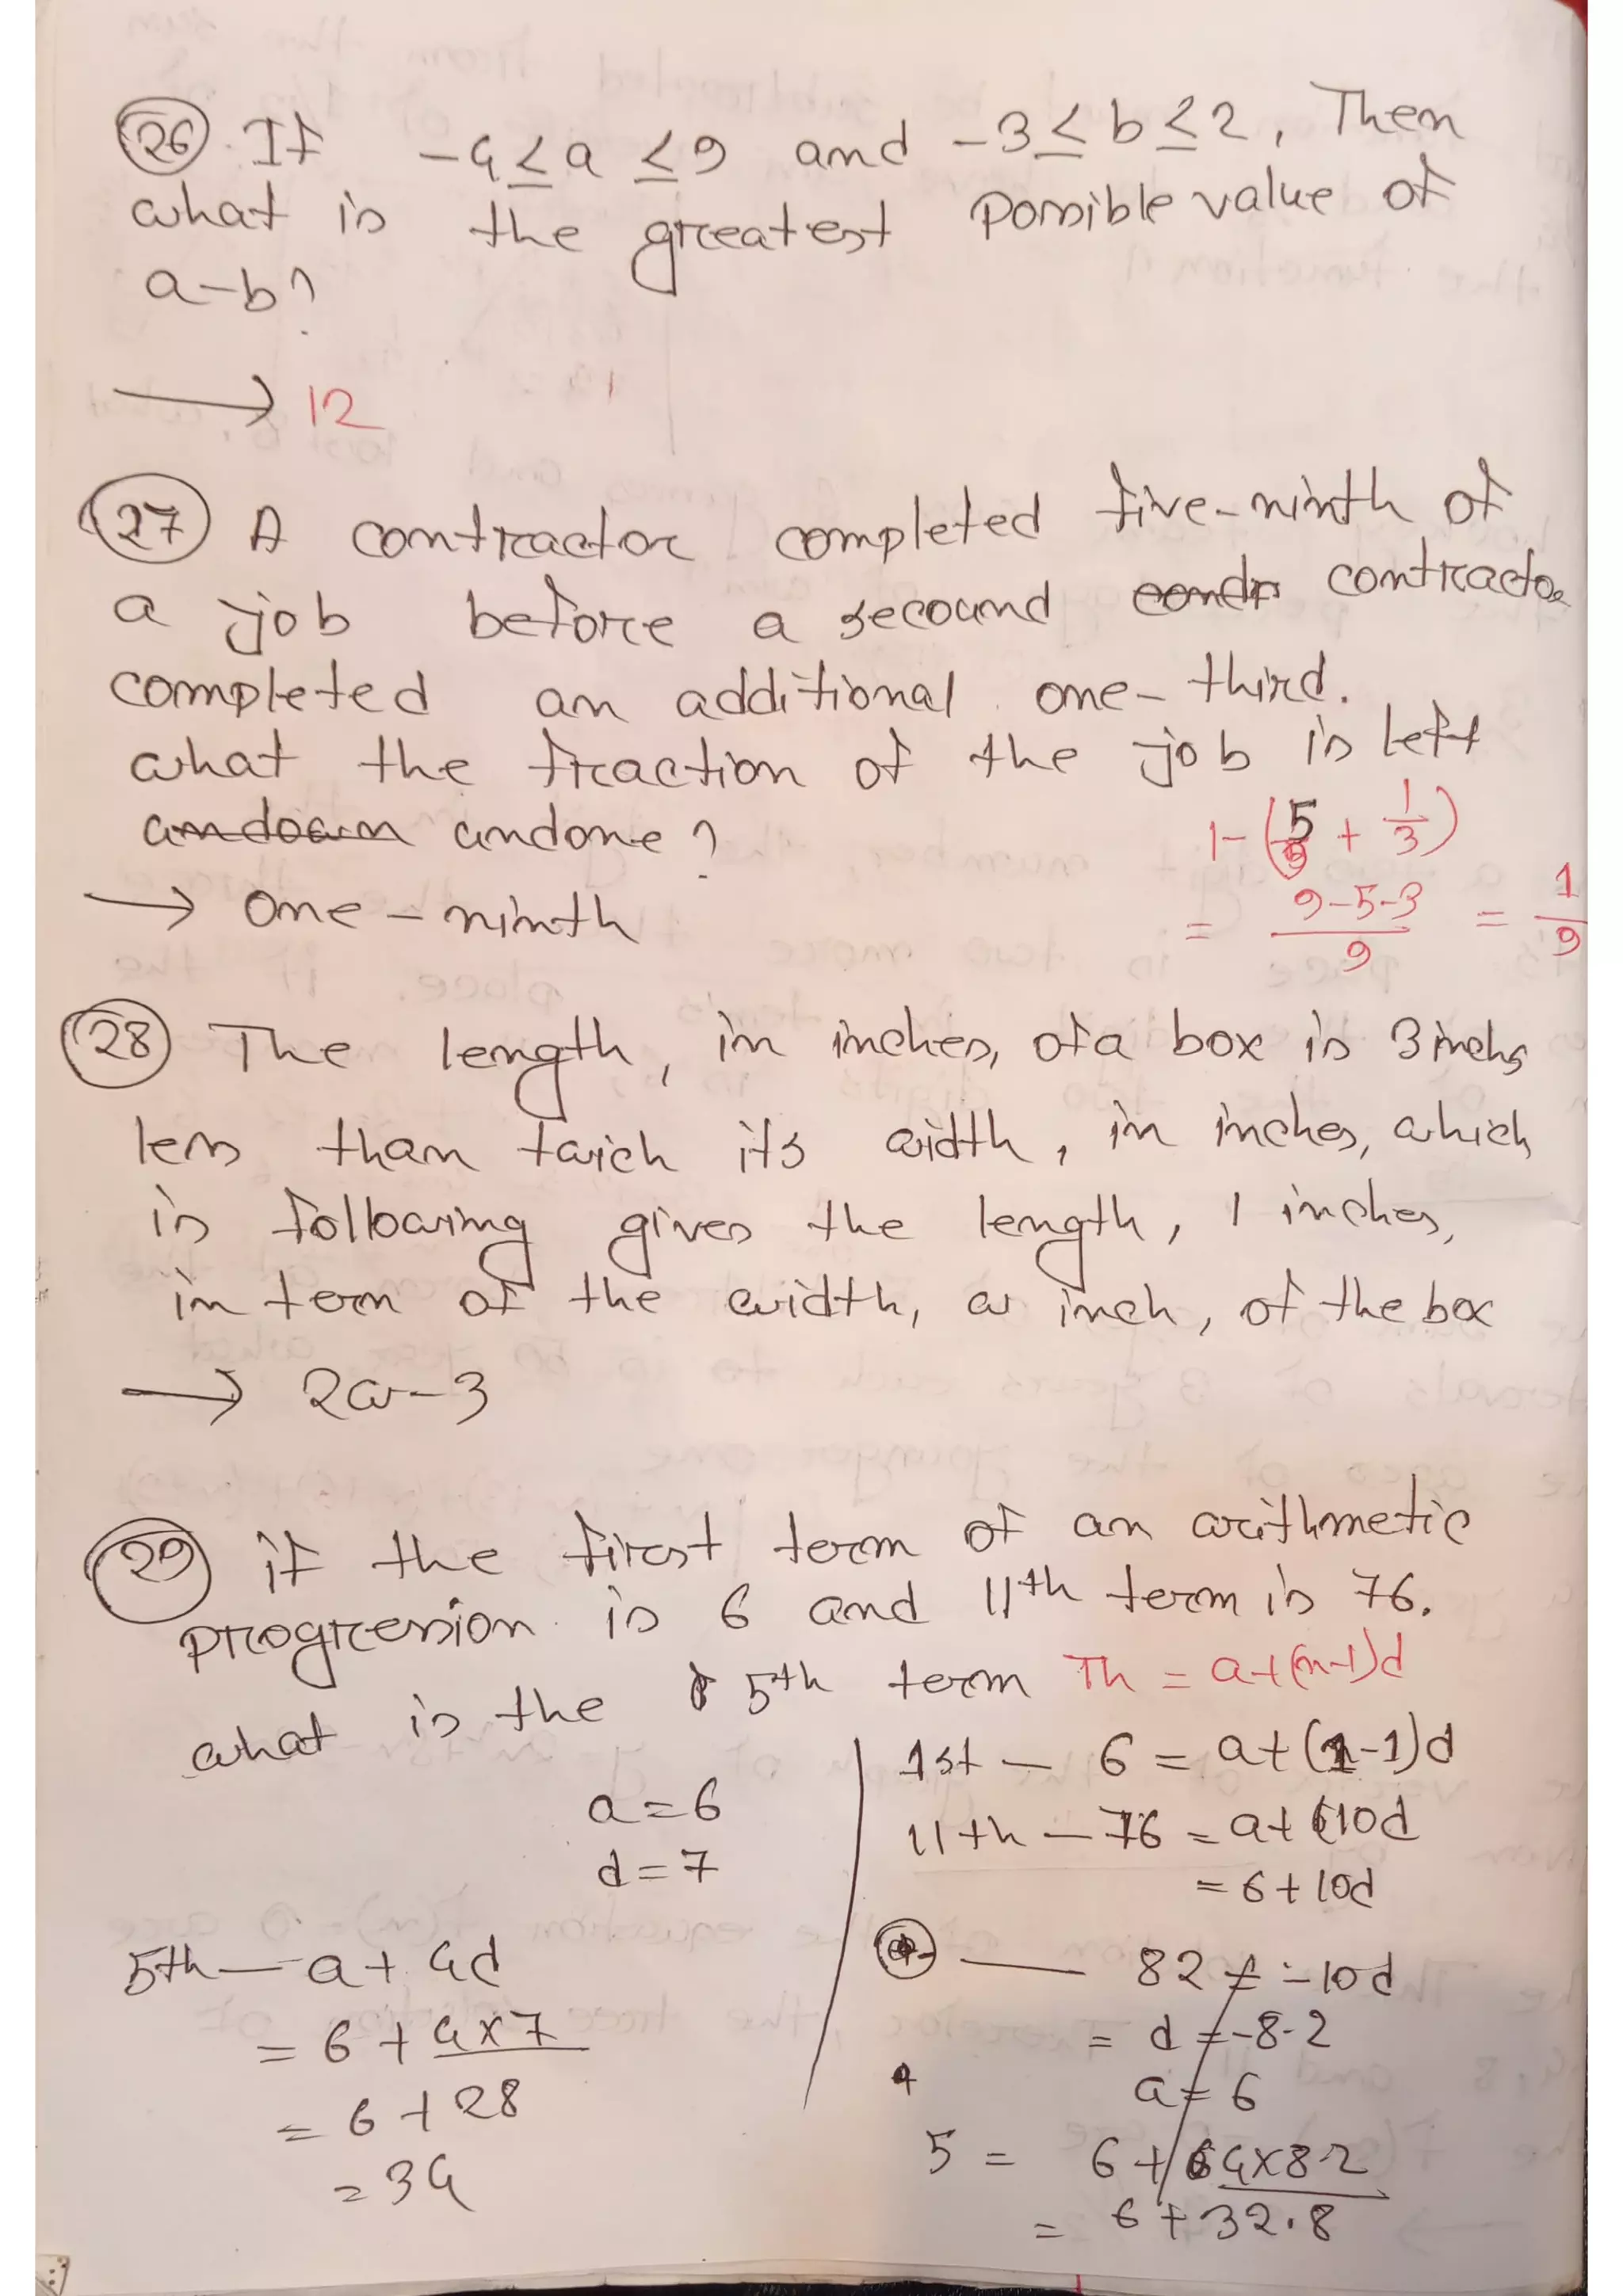 26 If -4≤a ≤9 and -3≤b≤2, Then
what is the greatest possible value of
a-b?
→ 12
27 A contractor completed five-ninth of
a job before a secound contr contractor
completed an additional one-third.
what the fraction of the job is left
andown undone?
1-(5/9 + 1/3)
= 9-5-3/9 = 1/9
→ One-ninth
28 The length, in inches, of a box is 3 inchs
less than twich its width, in inches, which
is following gives the length, l inches,
in term of the width, w inch, of the box
→ 2w-3
29 if the first term of an arithmetic
progression is 6 and 11th term is 76.
what is the 5th term Th = a+(n-1)d
a=6
d=7
5th — a+4d
= 6+4x7
= 6+28
= 34
1st — 6 = a+(1-1)d
11th — 76 = a+10d
= 6+10d
— 82 = -10d
= d = -8.2
a = 6
5 = 6+4x8.2
= 6+32.8